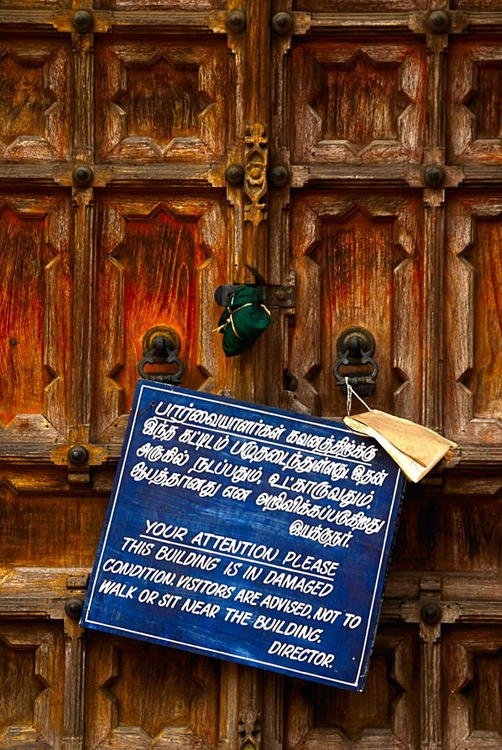 பார்வையாளர்கள் கவனத்திற்கு
இந்த கட்டிடம் பழுதடைந்துள்ளது. இதன்
அருகில் நடப்பதும், உட்காருவதும்,
ஆபத்தானது என அறிவிக்கப்படுகிறது
இயக்குநர்.
YOUR ATTENTION PLEASE
THIS BUILDING IS IN DAMAGED
CONDITION. VISITORS ARE ADVISED, NOT TO
WALK OR SIT NEAR THE BUILDING.
DIRECTOR.